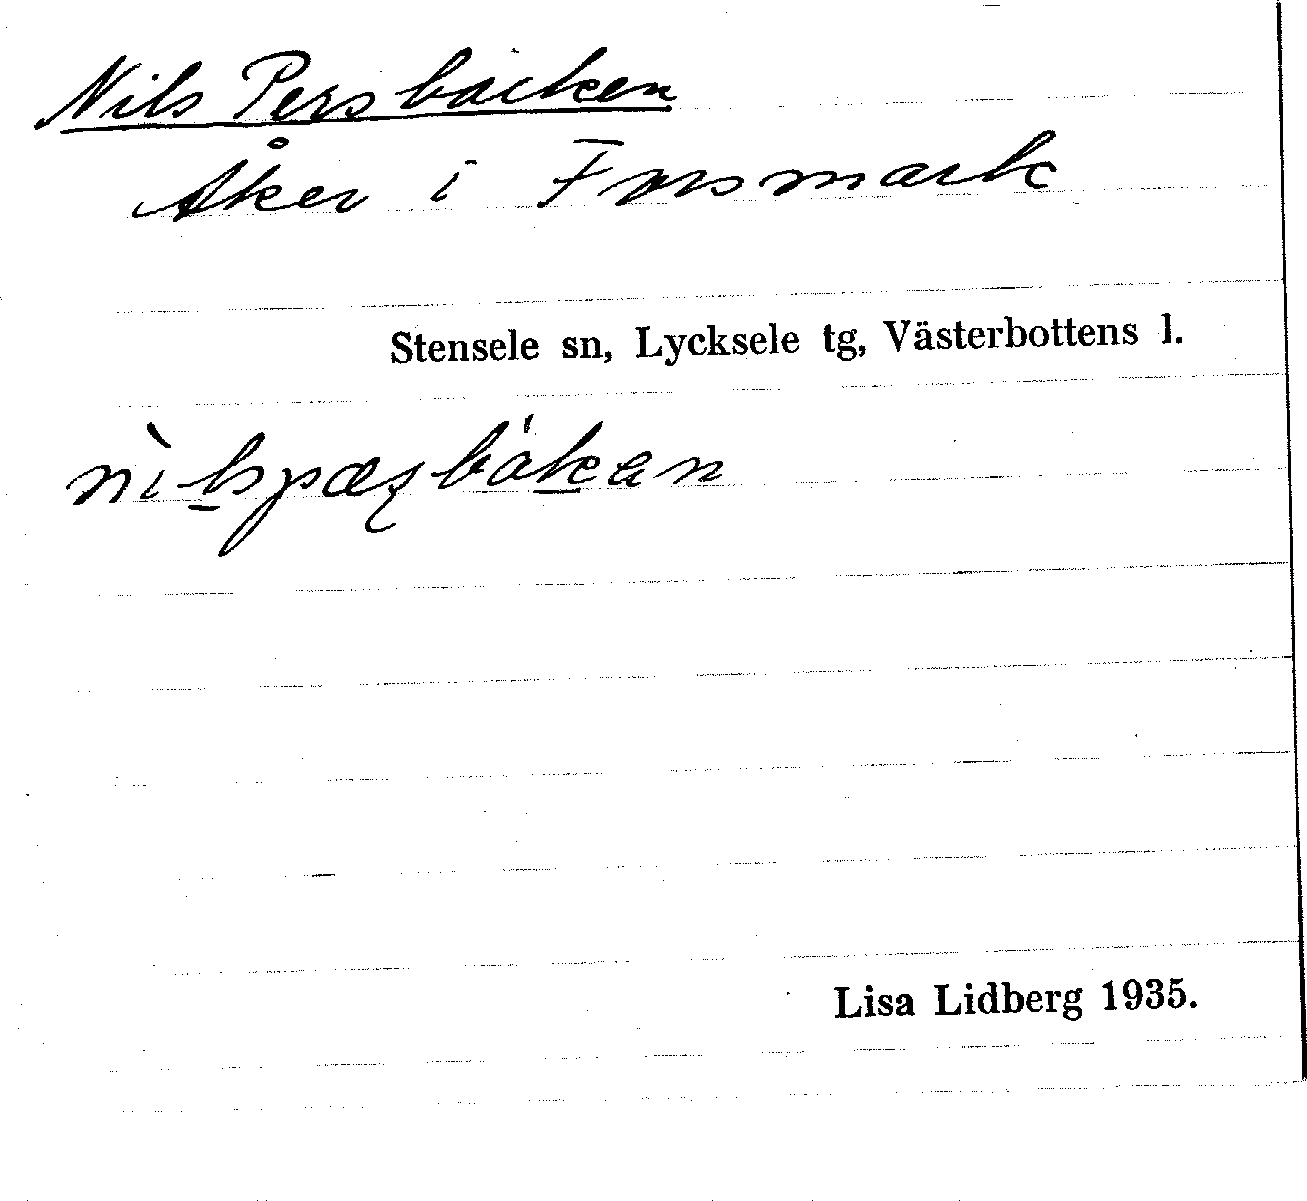 Nils Persbäcken
Åker i Forsmark
Stensele sn, Lycksele tg, Västerbottens l.
Lisa Lidberg 1935.